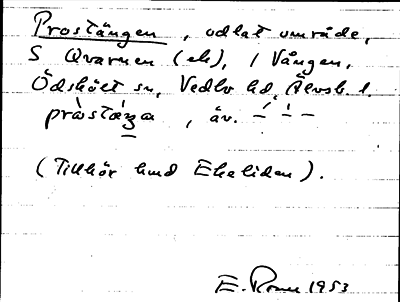 Prostängen, odlat område,
S Qvarnen (ek), i Vången,
Ödskölt sn, Vedbo hd, Älvsb. l.
, äv. – ̀ – –
(Tillhör hmd Ekeliden).
E. 1953